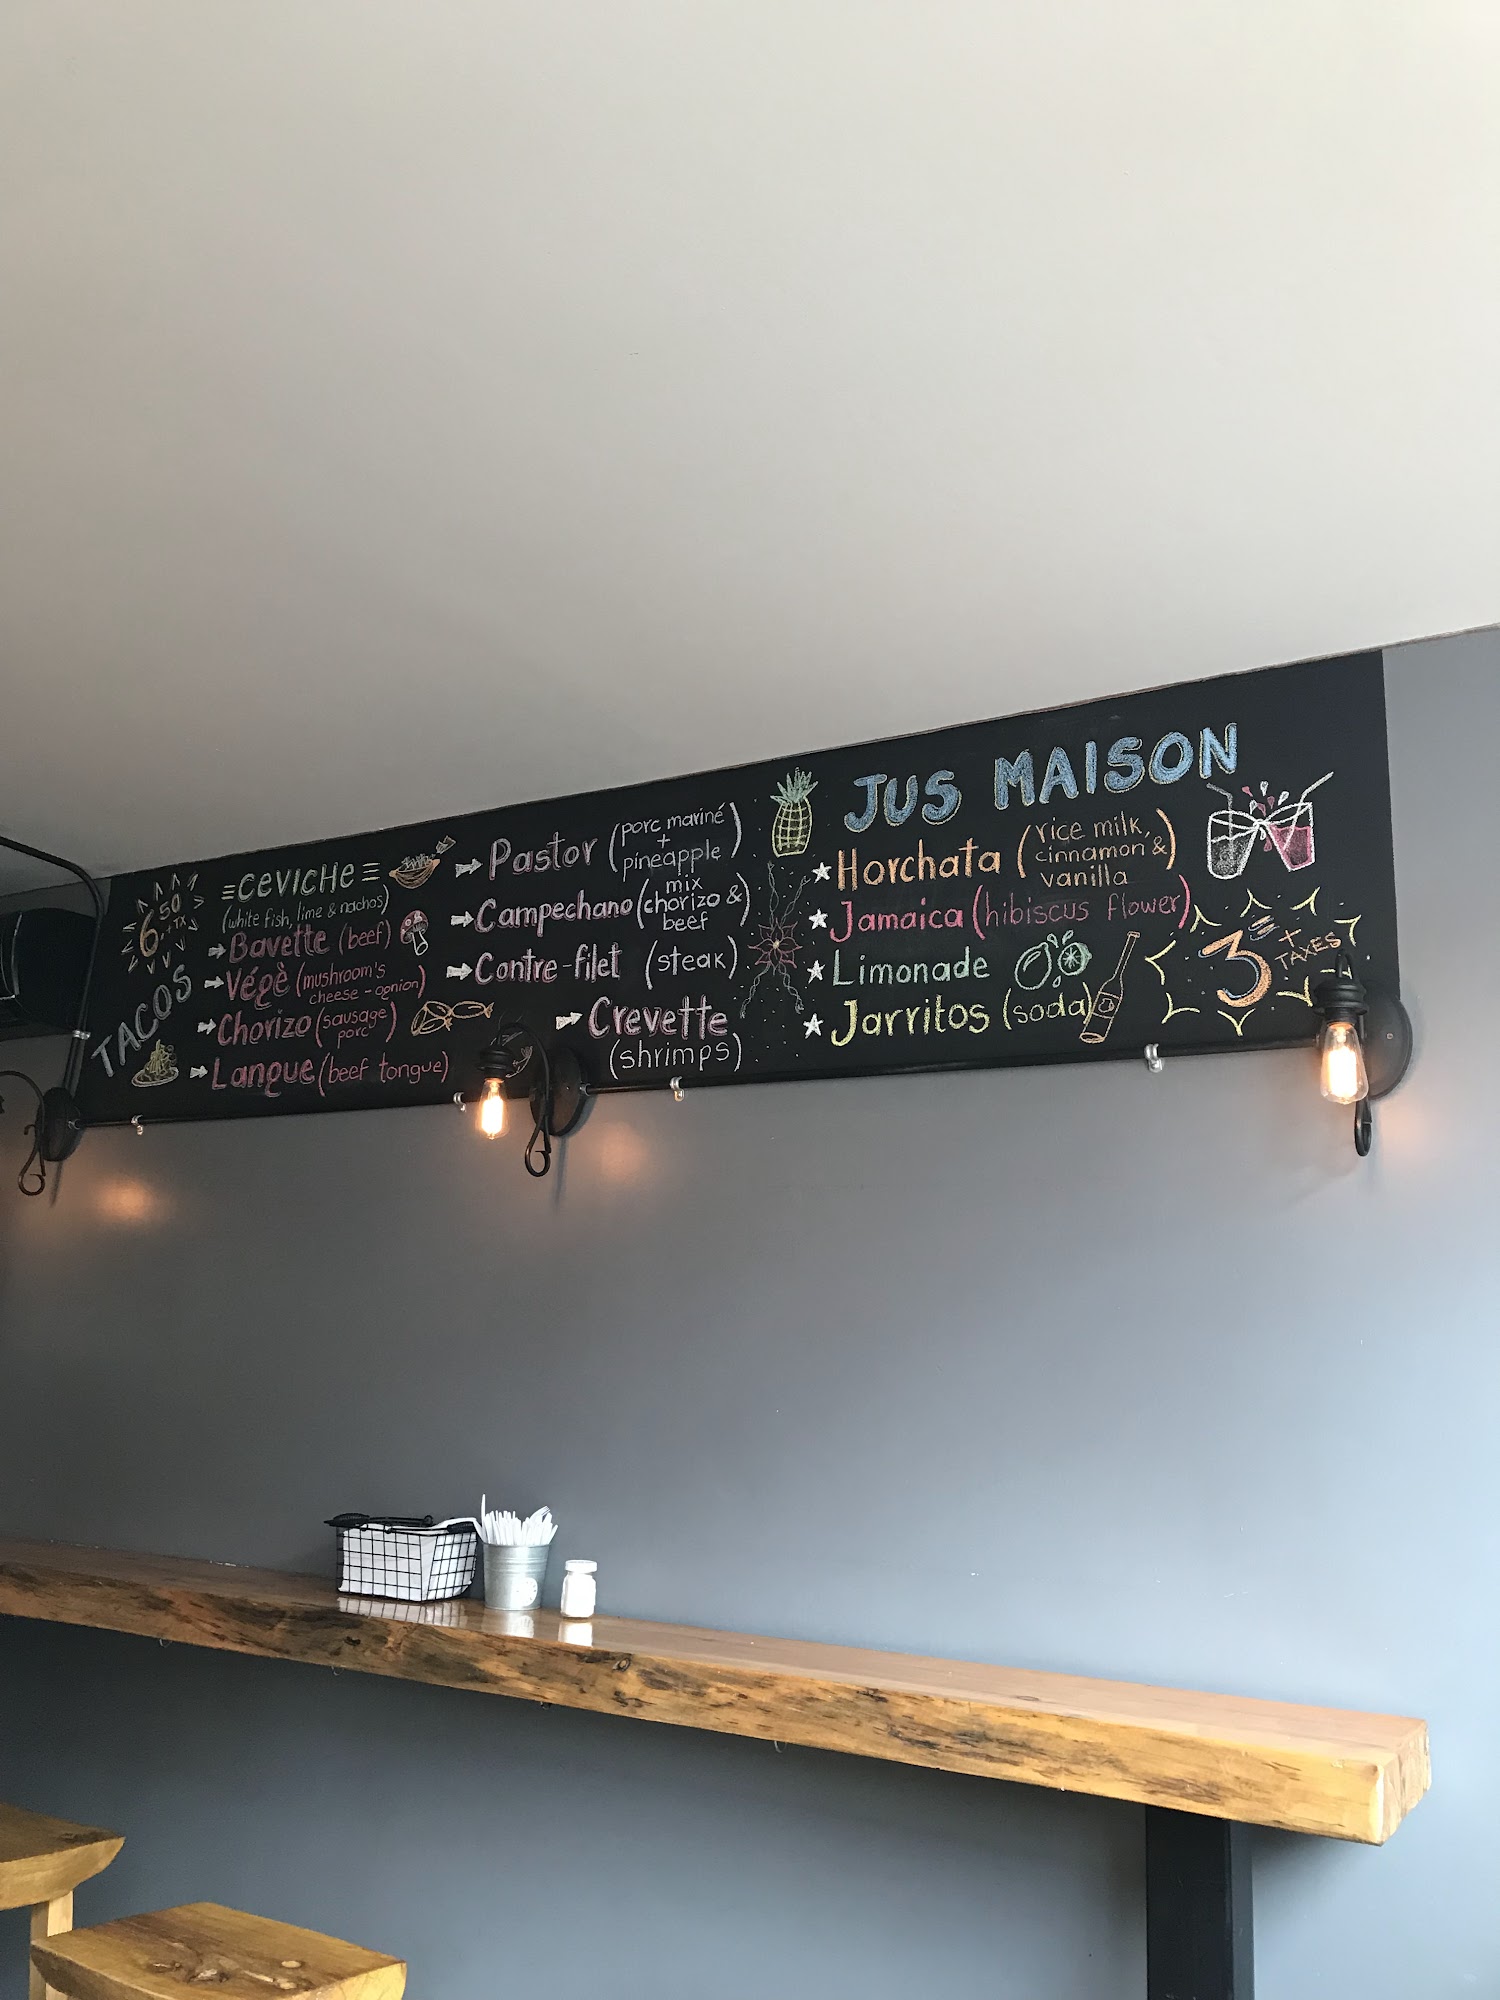 6.50 +TX
TACOS
CEVICHE
(white fish, lime & nachos)
Bavette (beef)
Végè (mushroom's
cheese - ognion)
Chorizo (sausage
porc)
Langue (beef tongue)
Pastor (porc mariné
+
pineapple)
Campechano (mix
chorizo &
beef)
Contre-filet (steak)
Crevette
(shrimps)
JUS MAISON
Horchata (rice milk,
cinnamon &
vanilla)
Jamaica (hibiscus flower)
Limonade
Jarritos (soda)
3 +
TAXES